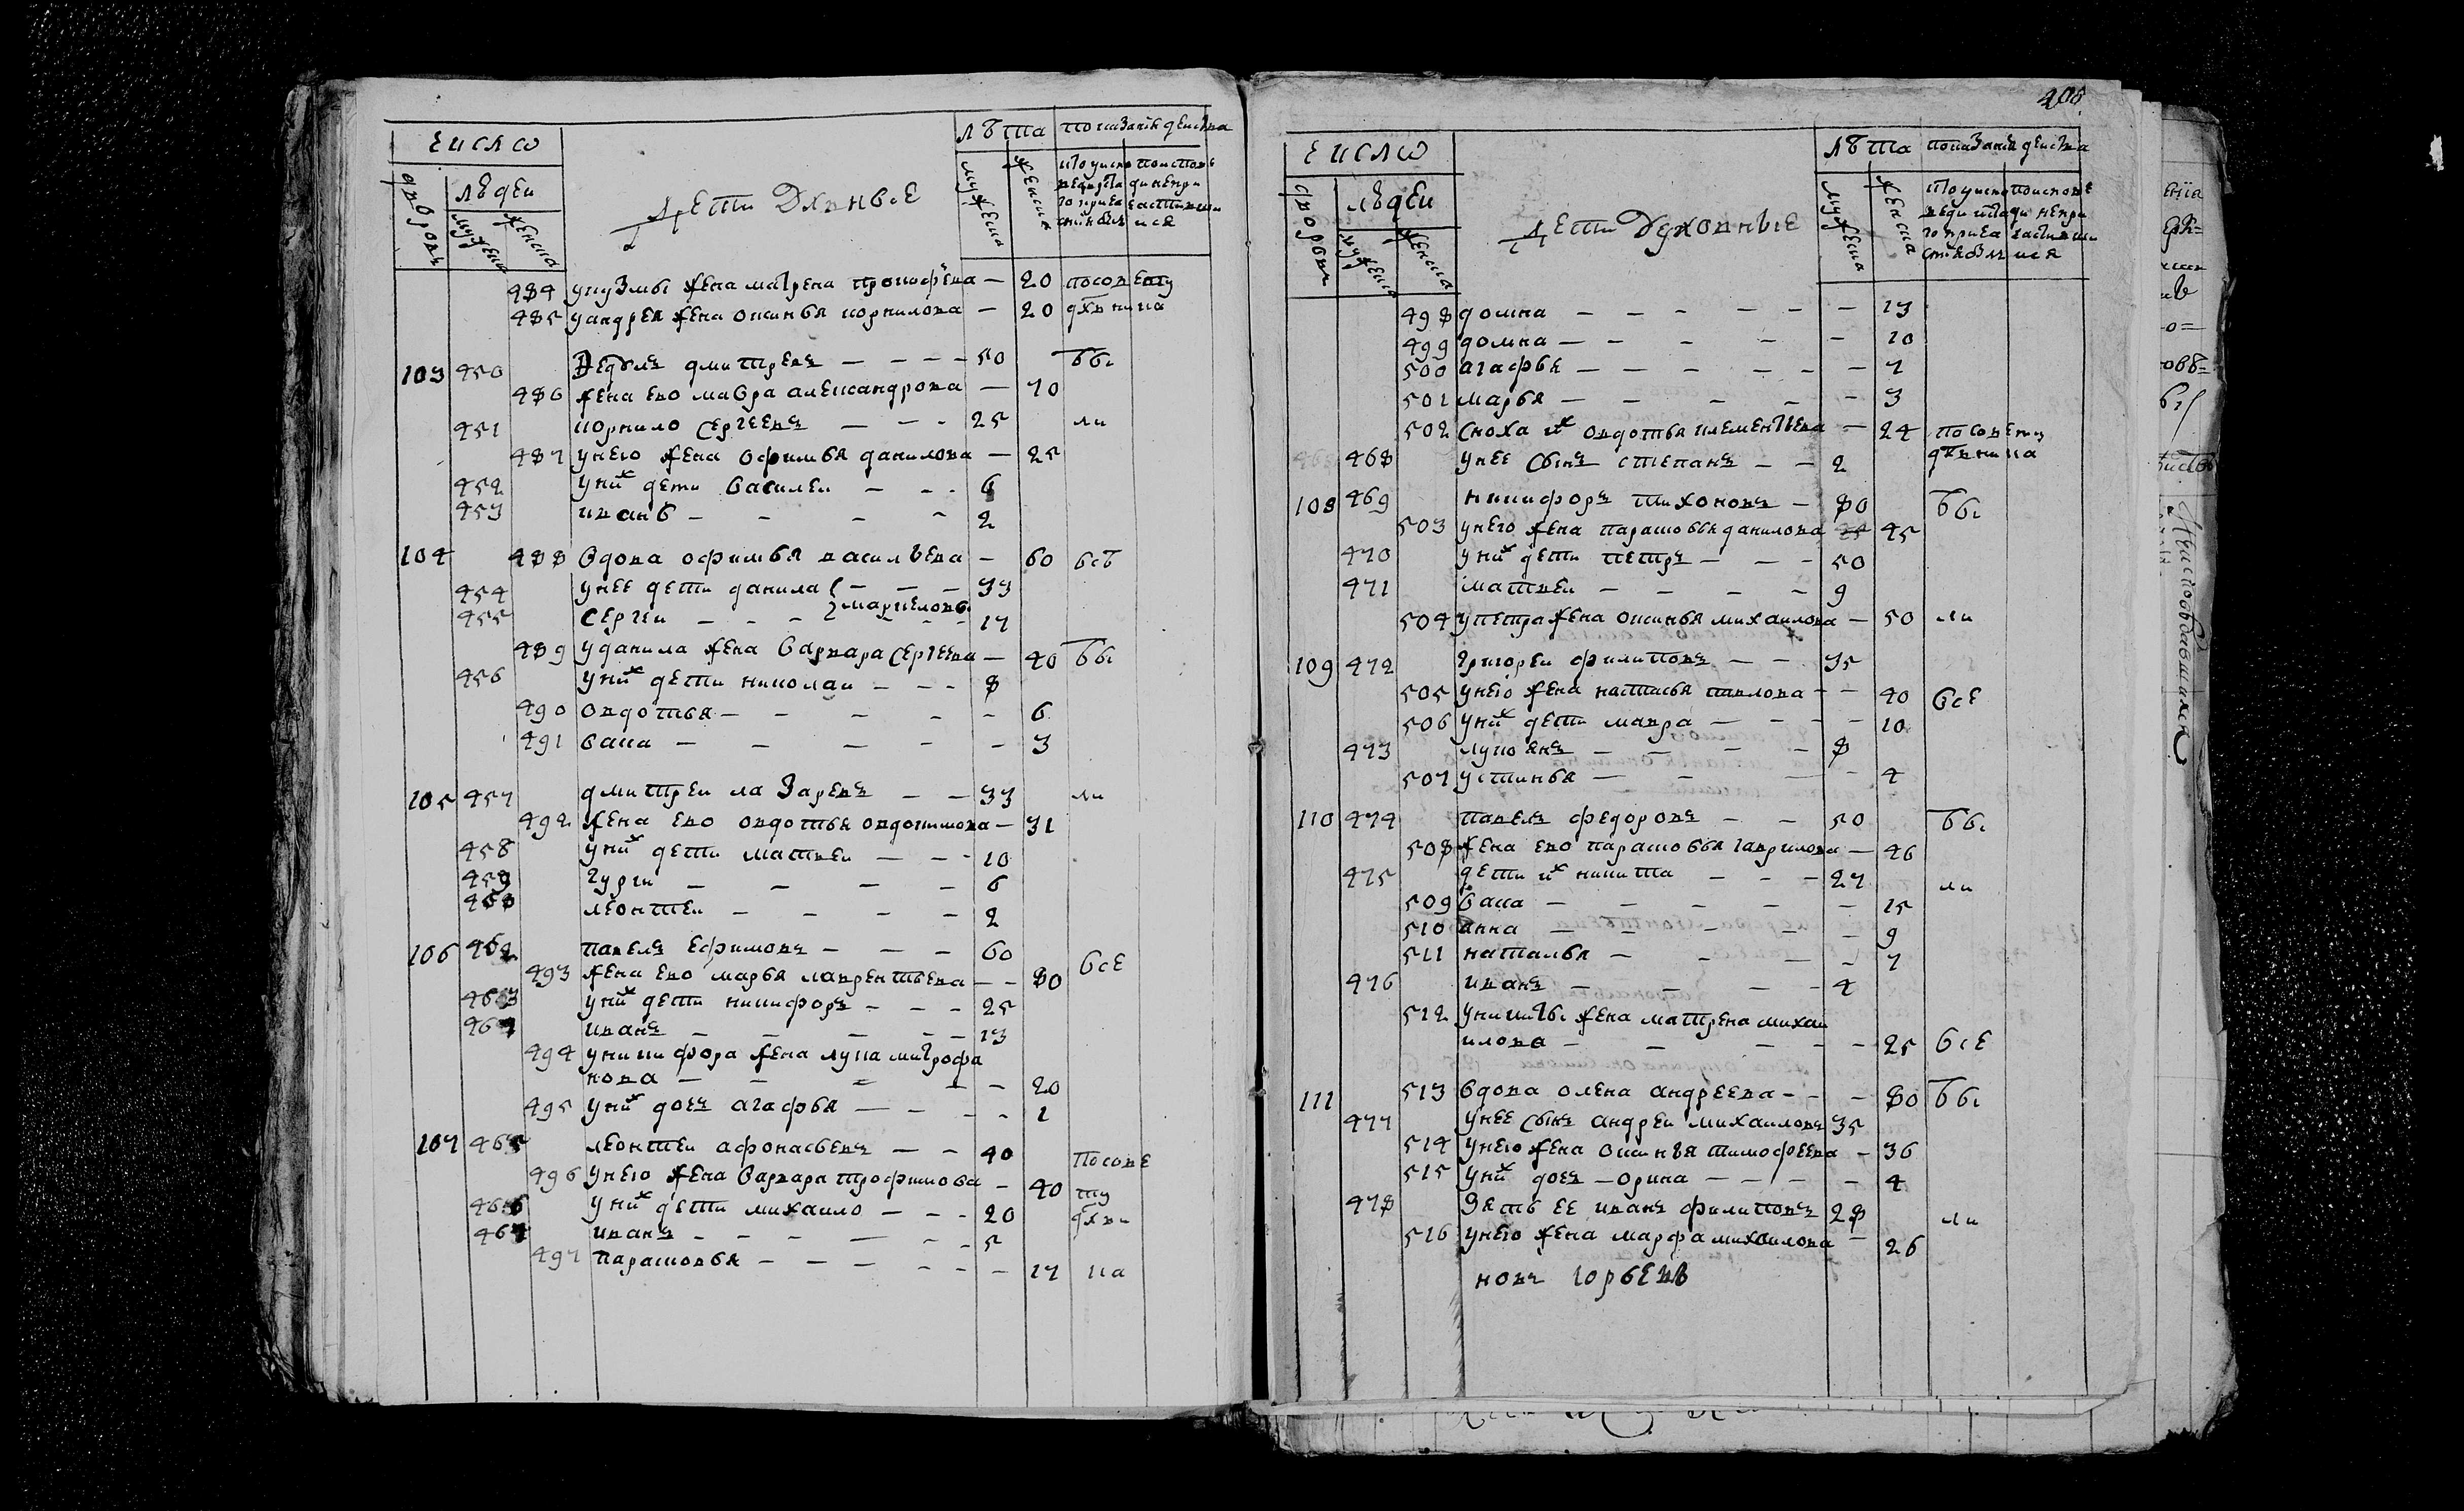 число
дворовъ
людеи
мужеска
женска
дѣти Дхвныѣ
лѣта
мужеска
женска
показание деиства
484 укузмы жена матрена прокофьева — 20 посовету
485 уандрея жена оксинья корнилова — 20 дхвника
103 450 Ѳедоръ дмитревъ — — — — 50 бы
486 жена ево мавра александрова — 70
451 корнило сергеевъ — — — 25 ли
487 унего жена офимья данилова — 25
452 унихъ дети василеи — — — 6
453 иванъ — — — — 2
104 488 вдова офимья васильева — 60 всѣ
454 унее дети данила — — — 33
455 сергеи — — — маркеловы — — 17
489 уданила жена варвара сергеева — 40 бы
456 унихъ дети николаи — — — 8
490 овдотья — — — — — 6
491 васа — — — — — 3
105 457 дмитреи лазаревъ — — 33 ли
492 жена ево овдотья овдокимова — 31
458 унихъ дети матвеи — — — 10
459 гурги — — — — 6
460 леонтеи — — — — 2
106 462 павелъ ефимовъ — — — 60
493 жена ево марья лаврентьева — — 80 все
463 унихъ дети никифоръ — — — 25
464 иванъ — — — — 13
494 уникифора жена лупа митрофа
нова — — — — — 20
495 унихъ дочь агафья — — — — 1
107 465 леонтеи афонасьевъ — — 40 посове
496 унего жена варвара трофимова — 40 ту
466 унихъ дети михаило — — — 20 дхвн
467 иванъ — — — — — 5
497 парасковья — — — — — — 17 ка
205
число
дворовъ
людеи
мужеска
женска
дети Духовныіе
лѣта
мужеска
женска
показание деиства
498 домна — — — — — — 13
499 домна — — — — — 10
500 агафья — — — — — — 7
501 марья — — — — — 3
502 сноха ихъ овдотья клементьева — 24 посовету
468 унее сынъ степанъ — — 2 дхвника
108 469 никифоръ тихоновъ — 80 бы
503 унего жена парасковья данилова 45
470 унихъ дети петръ — — — 50
471 матвеи — — — — 9
504 упетра жена оксинья михаилова — 50 ли
109 472 григореи филиповъ — — 35
505 унего жена настасья павлова — — 40 все
506 унихъ дети мавра — — — — 10
473 лукоянъ — — — — 8
507 устинья — — — — 4
110 474 павелъ федоровъ — — 50 бы
508 жена ево парасковья гаврилова — 46
475 дети ихъ никита — — — 27 ли
509 васа — — — — — 15
510 анна — — — — — 9
511 наталья — — — — 7
476 иванъ — — — — 4
512 уникиты жена матрена михаи
илова — — — — 25 все
111 513 вдова олена андреева — — — 80 бы
477 унее сынъ андреи михаиловъ 35
514 унего жена оксинья тимофеева — 36
515 унихъ дочь — орина — — — — 4
478 зять ее иванъ филиповъ 28 ли
516 унего жена марфа михаилова — 26